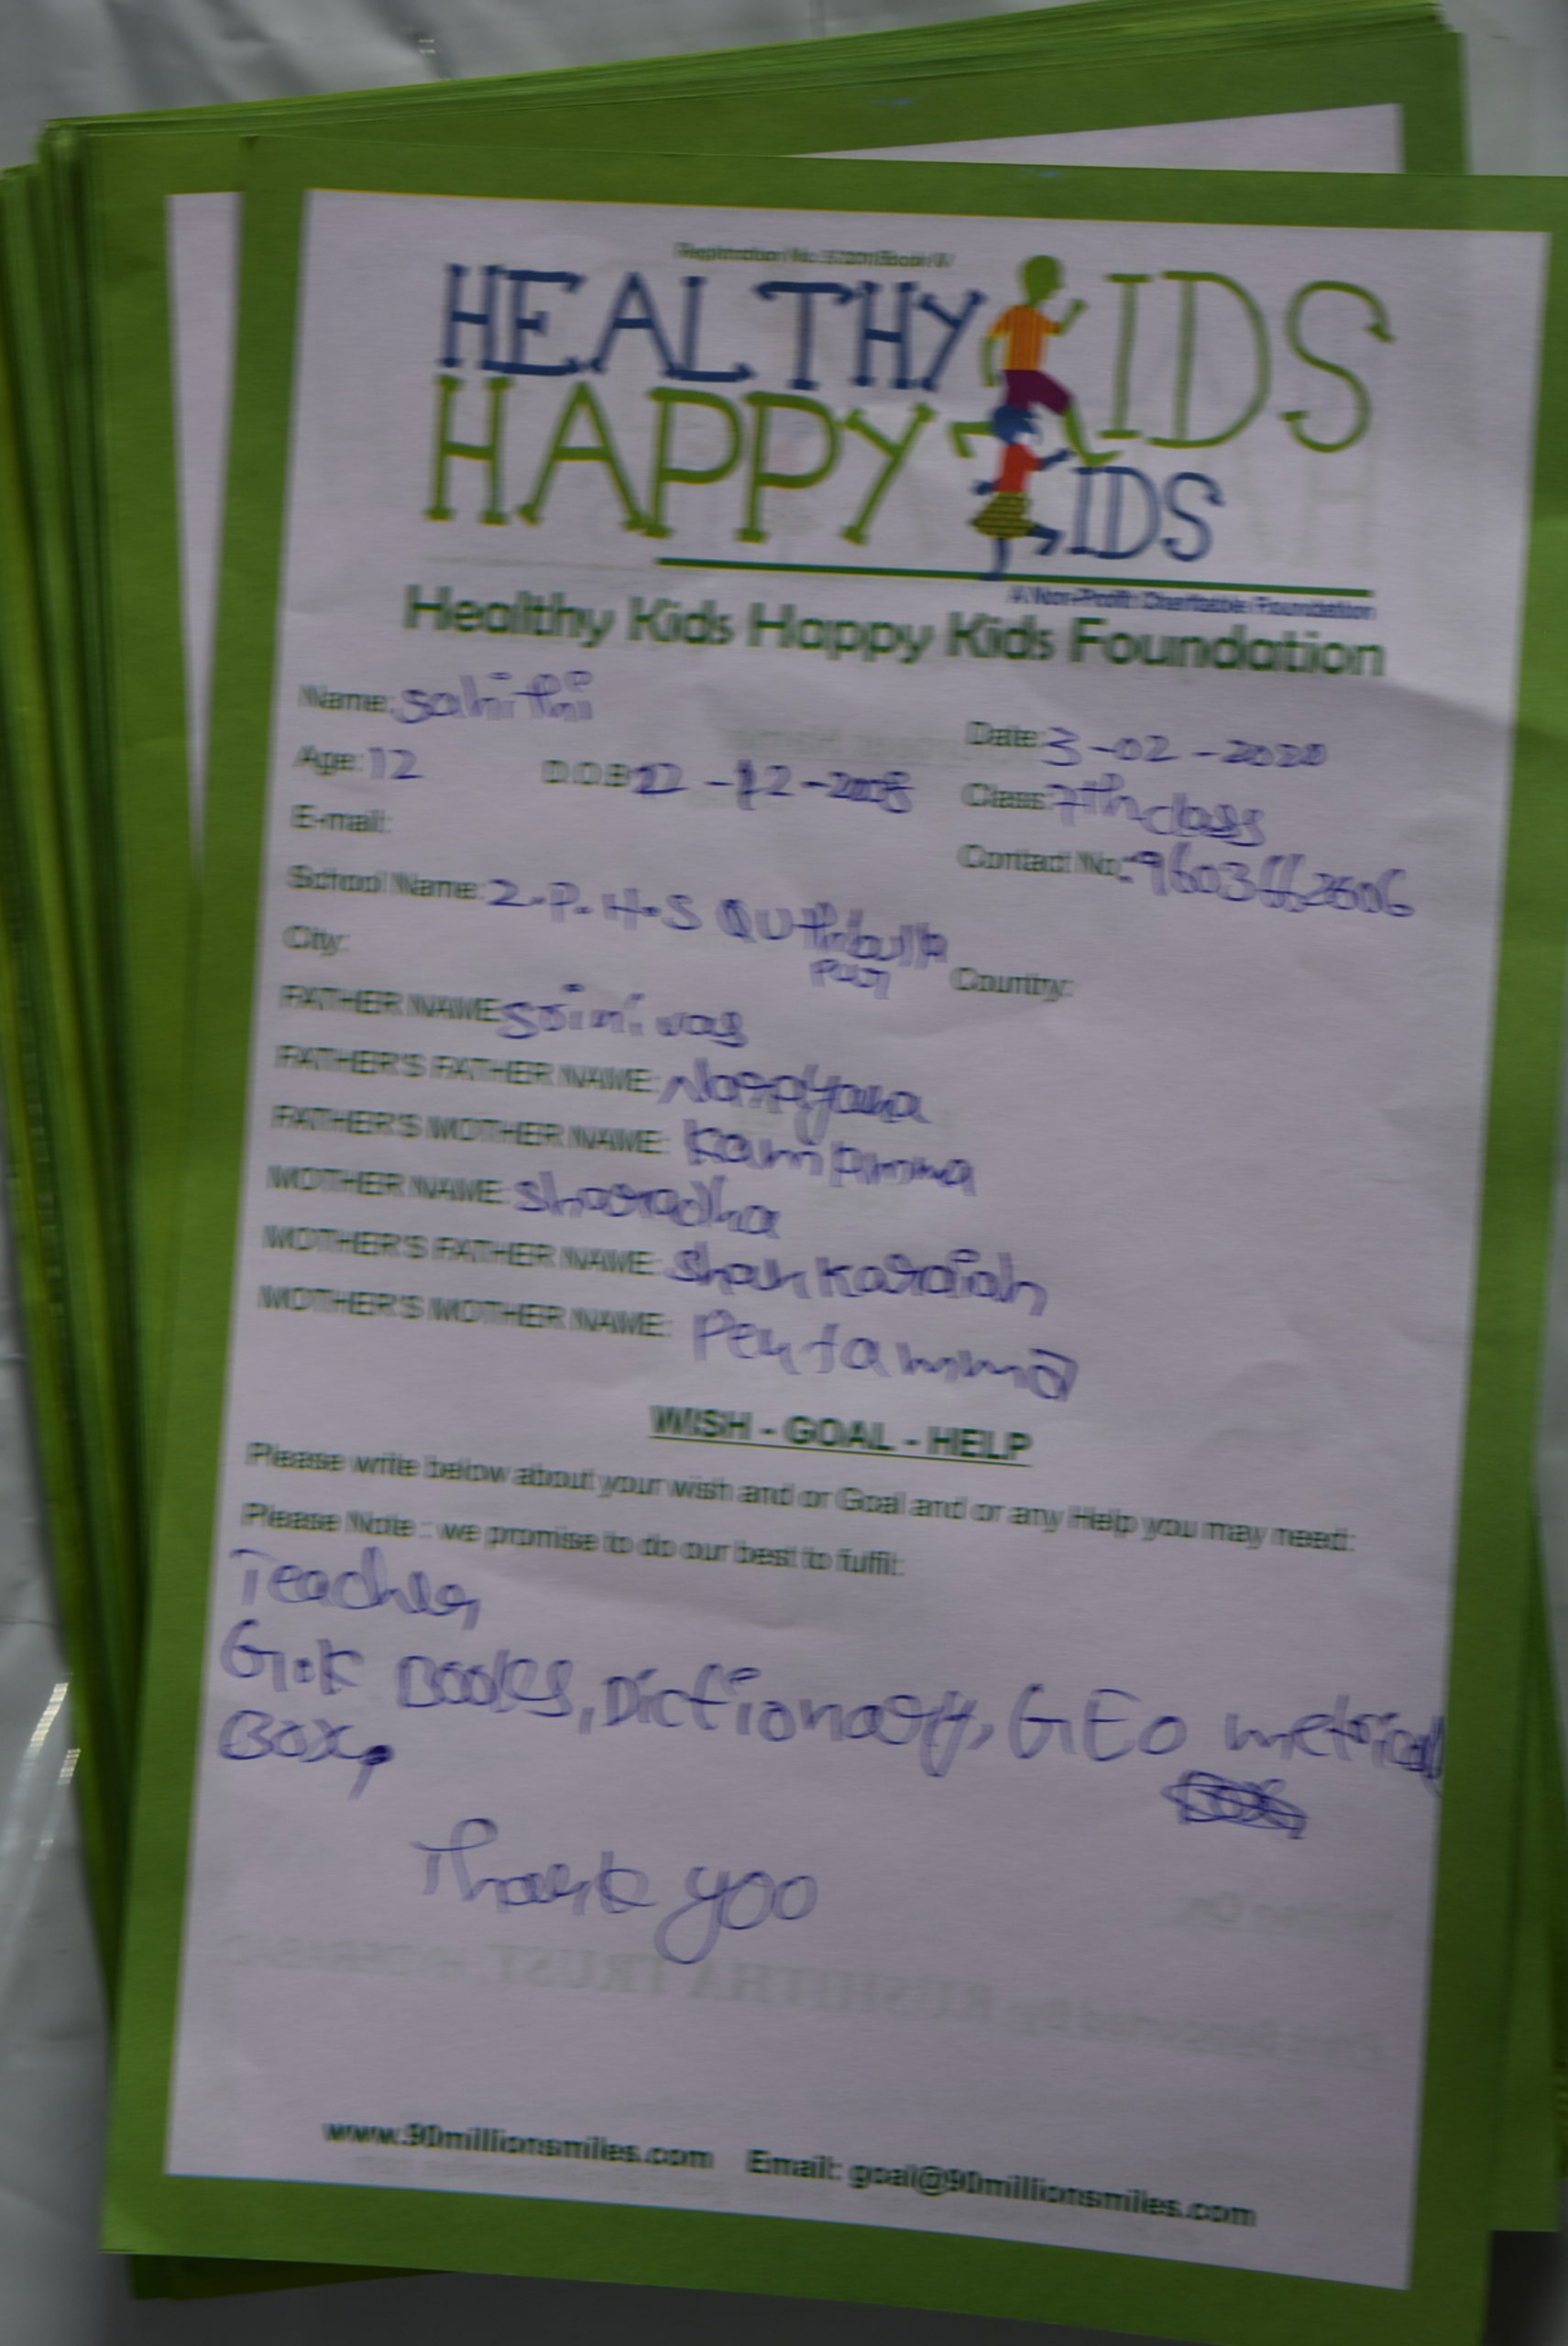 HEALTHY KIDS
HAPPY KIDS
A Non-Profit Charitable Foundation
Healthy Kids Happy Kids Foundation
Name: sahithi
Date: 3-02-2020
Age: 12 D.O.B 22-12-2008
Class: 7th class
E-mail:
Contact No:
School Name: Z.P.H.S QUthbulla
pur
City: Country:
FATHER NAME: srinivas
FATHER'S FATHER NAME:
FATHER'S MOTHER NAME:
MOTHER NAME: sharadha
MOTHER'S FATHER NAME: shankaraiah
MOTHER'S MOTHER NAME: Pentamma
WISH - GOAL - HELP
Please write below about your wish and or Goal and or any Help you may need:
Please Note : we promise to do our best to fulfil:
Teacher
G.K Books, Dictionary, GEo metrical
Box,
Thank yoo
www.90millionsmiles.com Email: goal@90millionsmiles.com